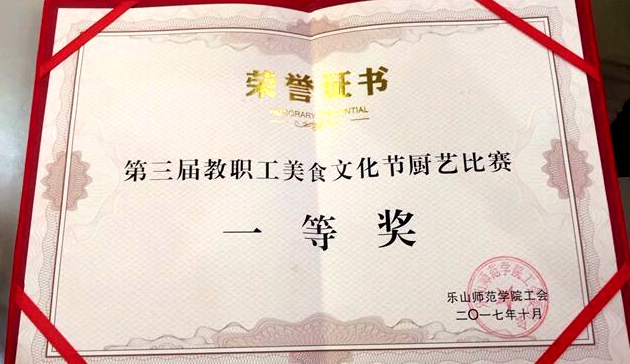 荣誉证书
HONORARY CREDENTIAL
第三届教职工美食文化节厨艺比赛
一等奖
乐山师范学院工会
二〇一七年十月